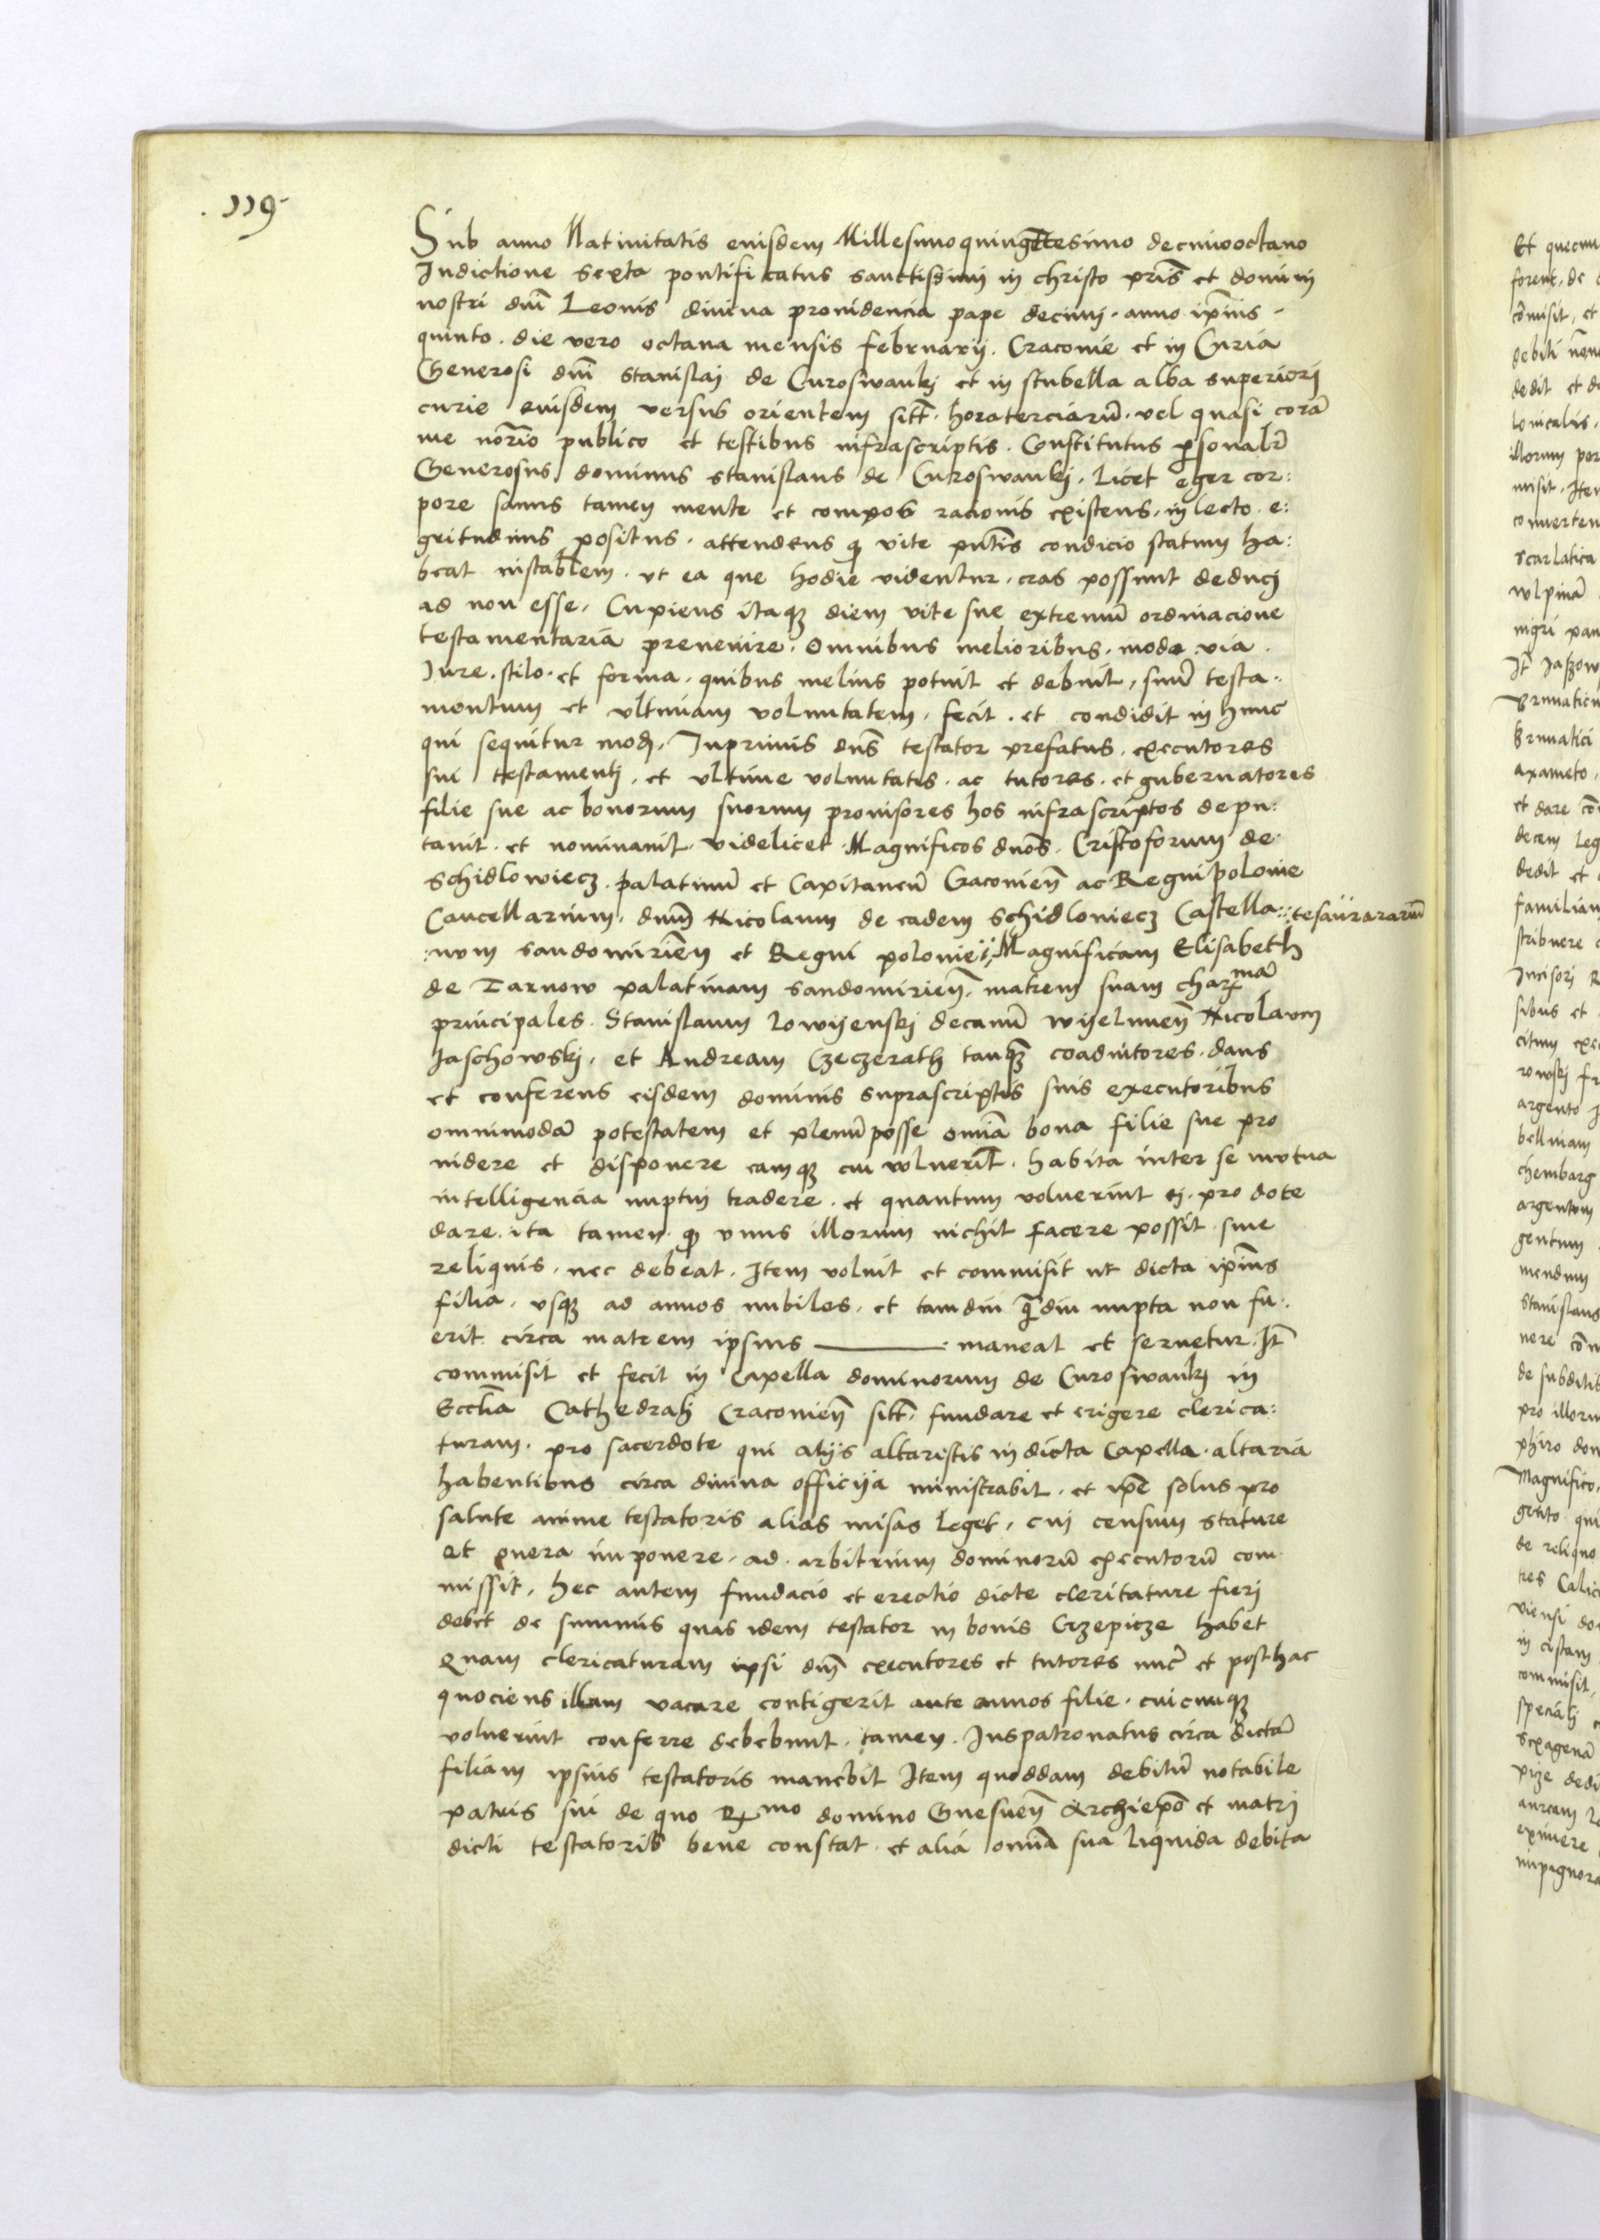 119
Sub anno Natiuitatis eiusdem Millesimoquingentesimo decimooctauo
Indictione sexta pontificatus sanctissimi in christo pris et domini
nostri dni Leonis diuina prouidencia pape decimi . anno ipius .
quinto . die vero octaua mensis februarij . Cracouie et in Curia
Generosi dni Stanislai de Curoswankj et in stubella alba superiori
curie eiusdem versus orientem sitt . hora terciarum . vel quasi cora
me norio publico et testibus infrascriptis . Constitutus psonalr
Generosus dominus Stanislaus de Curoswankj . Licet eger cor:
pore sanus tamen mente et compos racionis existens . in lecto . e:
gritudinis positus . attendens q vite pntis condicio statum ha:
beat instabilem . vt ea que hodie videntur . cras possunt deducj
ad non esse . Cupiens itaq diem vite sue extremu ordinacione
testamentaria preuenire . omnibus melioribus . modo via .
Iure . stilo . et forma . quibus melius potuit et debuit . suu testa..
mentum et vltimam voluntatem . fecit . et condidit in hunc
qui sequitur mod . Inprimis dns testator prefatus . executores
sui testamentj . et vltime voluntatis . ac tutores . et gubernatores
filie sue ac bonorum suorum prouisores hos infrascriptos depu:
tauit . et nominauit . videlicet . Magnificos dnos . Cristoforum de
Schidlowiecz . palatinu et Capitaneu Cracouien ac Regni polonie
Cancellarium . dnm Nicolaum de eadem Schidlouiecz Castella:: tesaurararium
:num sandomirien et Regni polonie :: Magnificam Elisabeth
de Tarnow palatinam sandomirien . matrem suam char mam
principales . Stanislaum Lowyenskj decanu wyelunen Nicolaum
Iaschowskj . et Andream Czeczerath tanq coadiutores . dans
et conferens eisdem dominis suprascriptis suis executoribus
omnimoda potestatem et plenu posse omia bona filie sue pro
uidere et disponere eamq cui voluerit . habita inter se mutua
intelligencia nuptui tradere . et quantum voluerint ej . pro dote
dare . ita tamen . q vnus illorum nichil facere possit . sine
reliquis . nec debeat . Item voluit et commisit ut dicta ipius
filia . vsq ad annos nubiles . et tamdiu qdiu nupta non fu:.
erit circa matrem ipsius ——— maneat et seruetur . It
commisit et fecit in Capella dominorum de Curoswankj in
Ecclia Cathedralj Cracouien sitt . fundare et erigere clerica:
turam . pro sacerdote qui alijs altaristis in dicta Capella . altaria
habentibus circa diuina officija ministrabit . et ipe solus pro
salute anime testatoris alias misas leget . cui censum stature
et onera imponere . ad . arbitrium dominoru executoru com
missit . hec autem fundacio et erectio dicte cleritature fieri
debet de summis quas idem testator in bonis Crzepicze habet
Quam clericaturam ipsi dni executores et tutores nuc et posthac
quociens illam vacare contigerit ante annos filie . cuicunq
voluerint conferre debebunt . tamen . Iuspatronatus circa dicta
filiam ipsius testatoris manebit Item quoddam debitu notabile
patris sui de quo R mo domino Gnesnen Archiepo et matri
dicti testatoris bene constat . et alia omia sua liquida debita
Et quecun
forent . de
comisit . et
debiti
dedit et d
illorum per
misit . Ite
conuerten
scarlatica
wlpina
nigri pan
axameto .
et dare co
decem
dedit et
familiam
stribuere
Incisorj
sibus et
citum exe
rowskj fr
argento
chembarg
argentum
gentum
Stanislaus
nere com
de subditis
pro illoru
Magnifico .
de reliquo
tres Calic
in cistam
commisit .
specialj
sexagena
auream
eximere
impignora